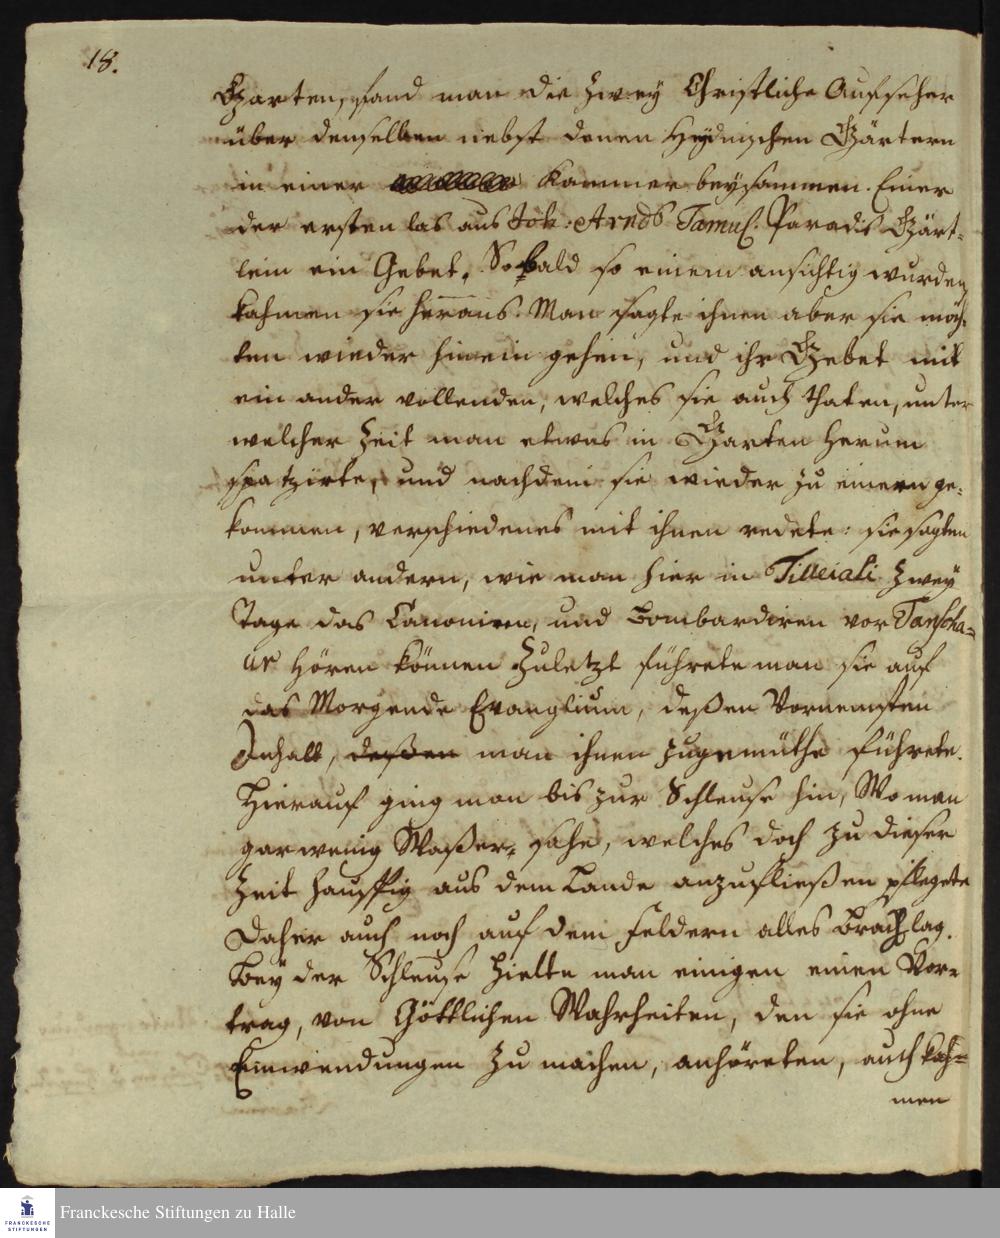 18.
Garten, fand man die zwey Christliche Aufseher
über denselben nebst denen Heydnischen Gärtern
in einer Kammer beysammen. Einer
der ersten las aus Joh: Arnds Tamul. Paradis Gärt-
lein ein Gebet. So bald sie einem ansichtig wurden
kahmen sie heraus. Man sagte ihnen aber sie möch-
ten wieder hinein gehen, und ihr Gebet mit
ein ander vollenden, welches sie auch thaten, unter
welcher Zeit man etwas in Garten herum
spatzirte, und nachdem sie wieder zu einem ge-
kommen, verschiedenes mit ihnen redete: sie sagten
unter andern, wie man hier in Tilleiali zwey
Tage das Canoniren, und Bombardiren vor Tanscha-
ur hören können Zuletzt führete man sie auf
das Morgende Evanglium, deßen Vornemsten
Inhalt, deßen man ihnen zugemüthe führete.
Hierauf ging man bis zur Schleuse hin, Wo man
gar wenig Waßer sahe, welches doch zu dieser
Zeit hauffig aus dem Lande anzufließen pflegete
Daher auch noch auf dem Feldern alles Brach lag.
Bey der Schleuse hielte man einigen einen Vor-
trag, von Göttlichen Wahrheiten, den sie ohne
Einwendungen zu machen, anhöreten, auch kah-
men
Franckesche Stiftungen zu Halle
FRANCKESCHE
STIFTUNGEN